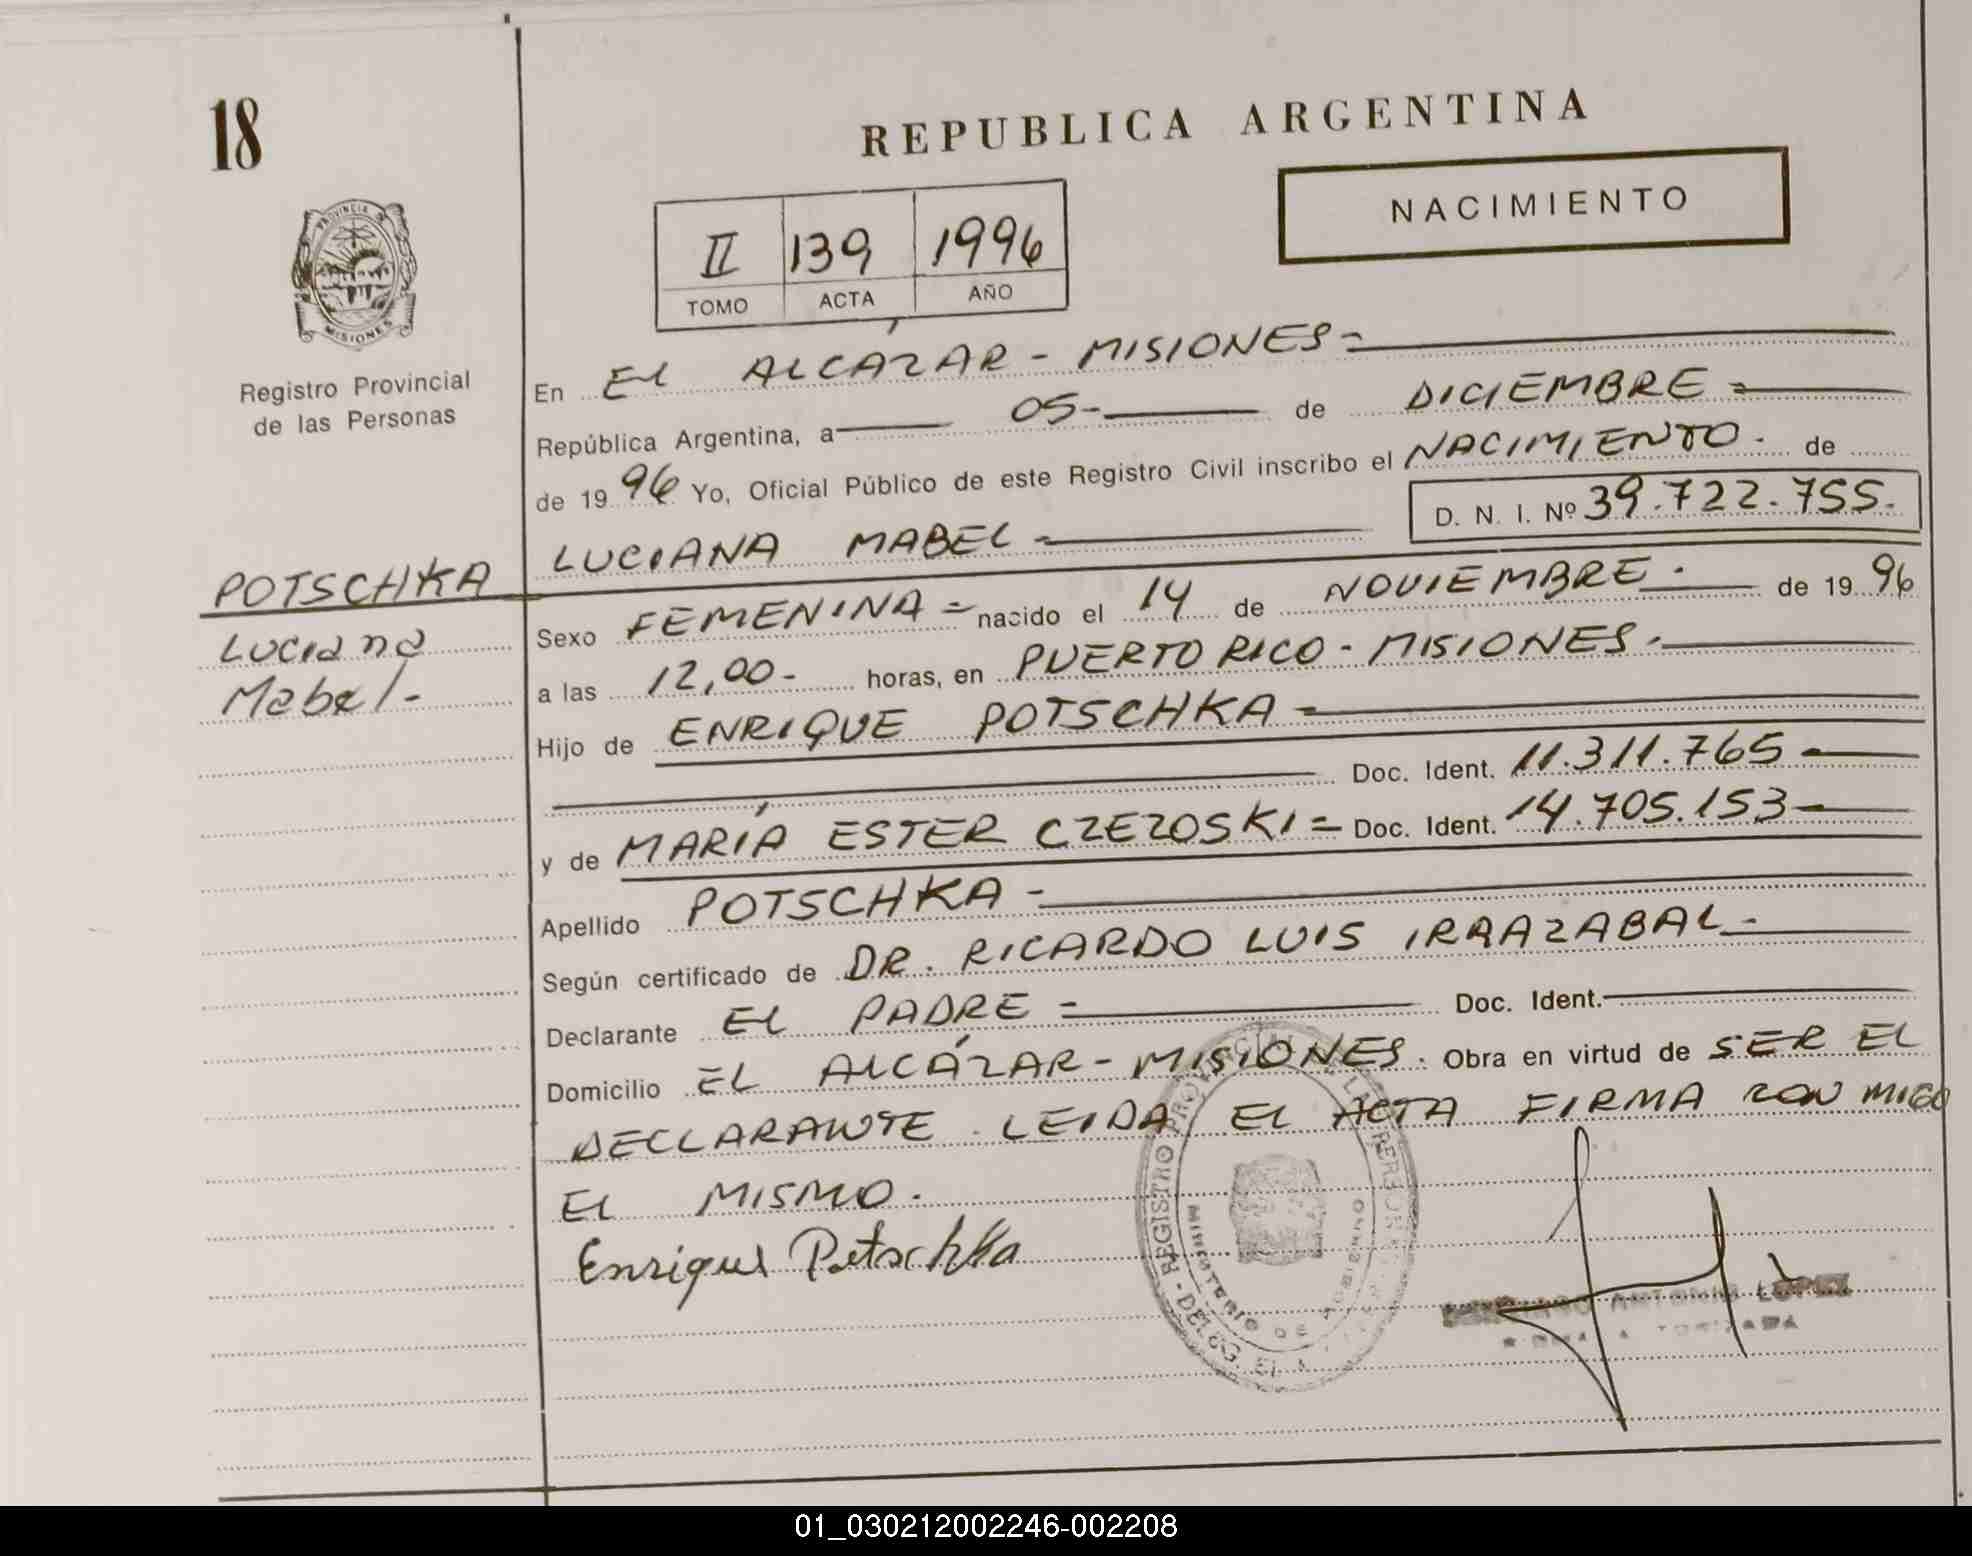 18
REPUBLICA ARGENTINA
NACIMIENTO
II 139 1996
TOMO ACTA AÑO
PROVINCIA
MISIONES
Registro Provincial
de las Personas
En EL ALCÁZAR - MISIONES =
República Argentina, a 05- de DICIEMBRE =
de 19 96 Yo, Oficial Público de este Registro Civil inscribo el NACIMIENTO. de
D. N. I. Nº 39.722.755.
LUCIANA MABEL =
POTSCHKA
Luciana
Mabel.-
Sexo FEMENINA = nacido el 14 de NOVIEMBRE. de 19 96
a las 12,00- horas, en PUERTO RICO - MISIONES.
Hijo de ENRIQUE POTSCHKA =
Doc. Ident. 11.311.765 -
y de MARÍA ESTER CZEZOSKI = Doc. Ident. 14.705.153 -
Apellido POTSCHKA -
Según certificado de DR. RICARDO LUIS IRRAZABAL -
Declarante EL PADRE = Doc. Ident.
Domicilio EL ALCÁZAR - MISIONES. Obra en virtud de SER EL
DECLARANTE. LEIDA EL ACTA FIRMA CON MIGO
EL MISMO.
Enrique Potschka
REGISTRO PROVINCIAL DE LAS PERSONAS - DELEG. EL
MINISTERIO DE GOBIERNO
ANTONIO LOPEZ
01_030212002246-002208